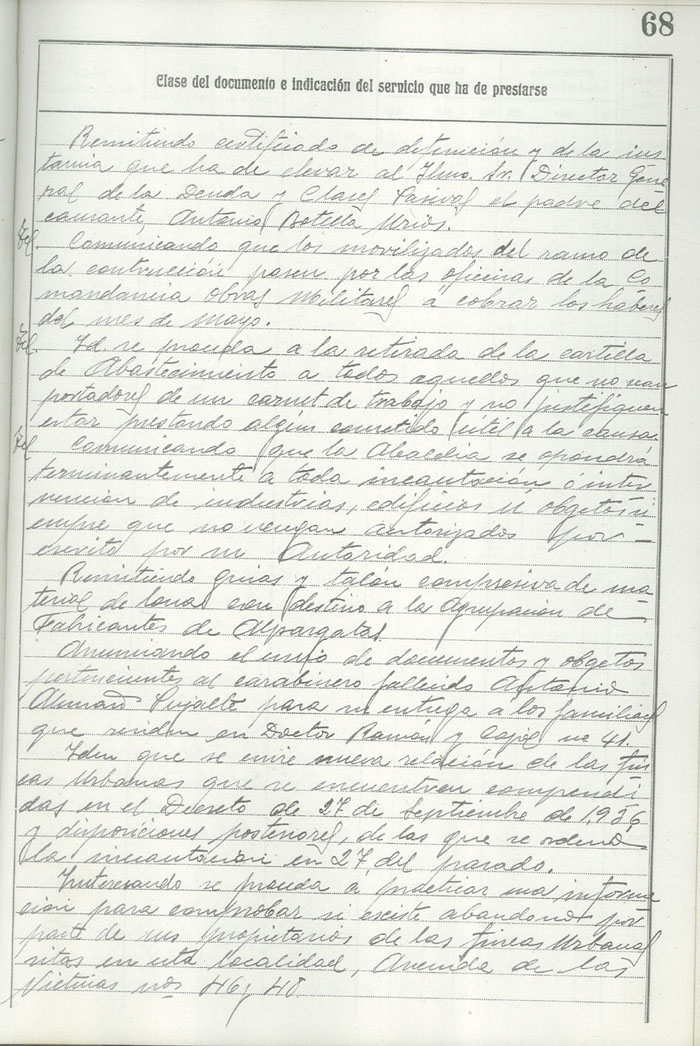 68
Clase del documento e indicación del servicio que ha de prestarse
Remitiendo certificado de defunción y de la ins
tancia que ha de elevar al Ilmo. Sr. Director Gene
ral de la Deuda y Clases Pasivas el padre del
causante, Antonio Botella Urios.
Comunicando que los movilizados del ramo de
la contrucción pasen por las oficinas de la Co
mandancia obras Militares a cobrar los haberes
del mes de Mayo.
Id. se proceda a la retirada de la cartilla
de Abastecimiento a todos aquellos que no sean
portadores de un carnet de trabajo y no justifiquen
estar prestando algún cometido útil a la causa.
Comunicando que la Alcaldia se opondrá
terminantemente a toda incautación ó inter
vención de industrias, edificios u objetos si
empre que no vengan autorizados por
escrito por su Autoridad.
Remitiendo guias y talón compresiva de ma
terial de lona con destino a la Agrupación de
Fabricantes de Alpargatas.
Anunciando el envio de documentos y objetos
pertenecientes al carabinero fallecido Antonio
Pujalte para su entrega a los familiares
que residen en Doctor Ramón y Cajal nº 41.
Idem que se envie nueva relación de las fin
cas Urbanas que se encuentran comprendi
das en el Decreto de 27 de Septiembre de 1.936
y disposiciones posteriores, de las que se ordenó
la incautación en 27 del pasado.
Interesando se proceda a practicar una informa
ción para comprobar si existe abandono por
parte de sus propietarios de las fincas Urbanas
sitas en esta localidad, Avenida de las
Victimas nos 46 y 48.